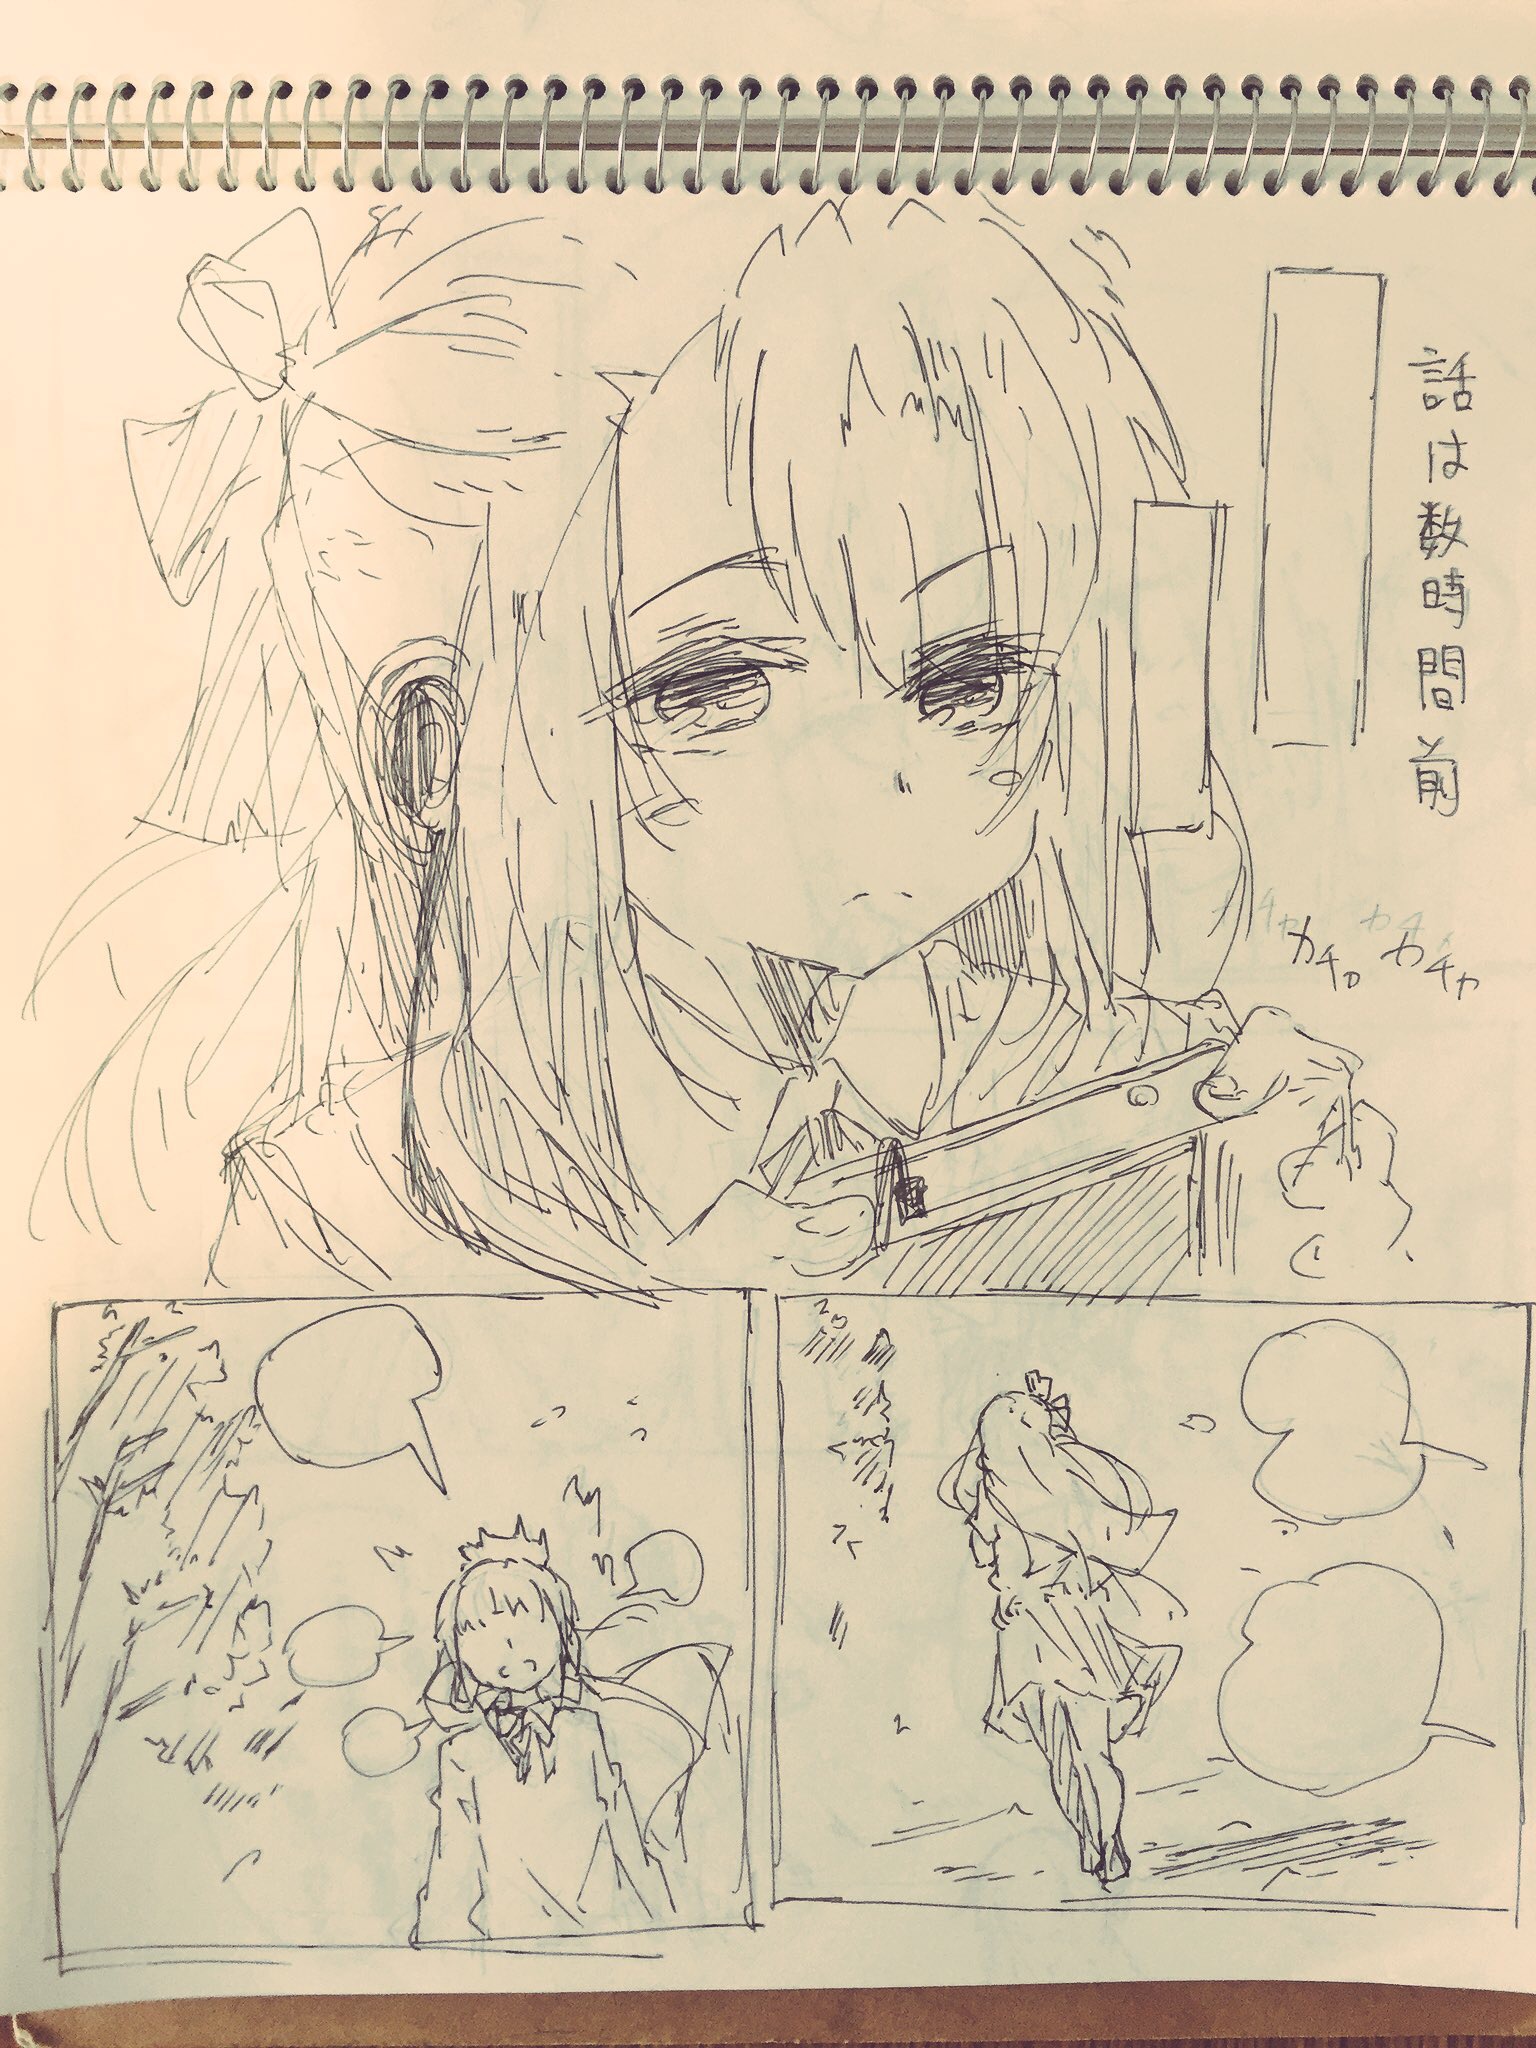 話は数時間前
カチャ
カチャ